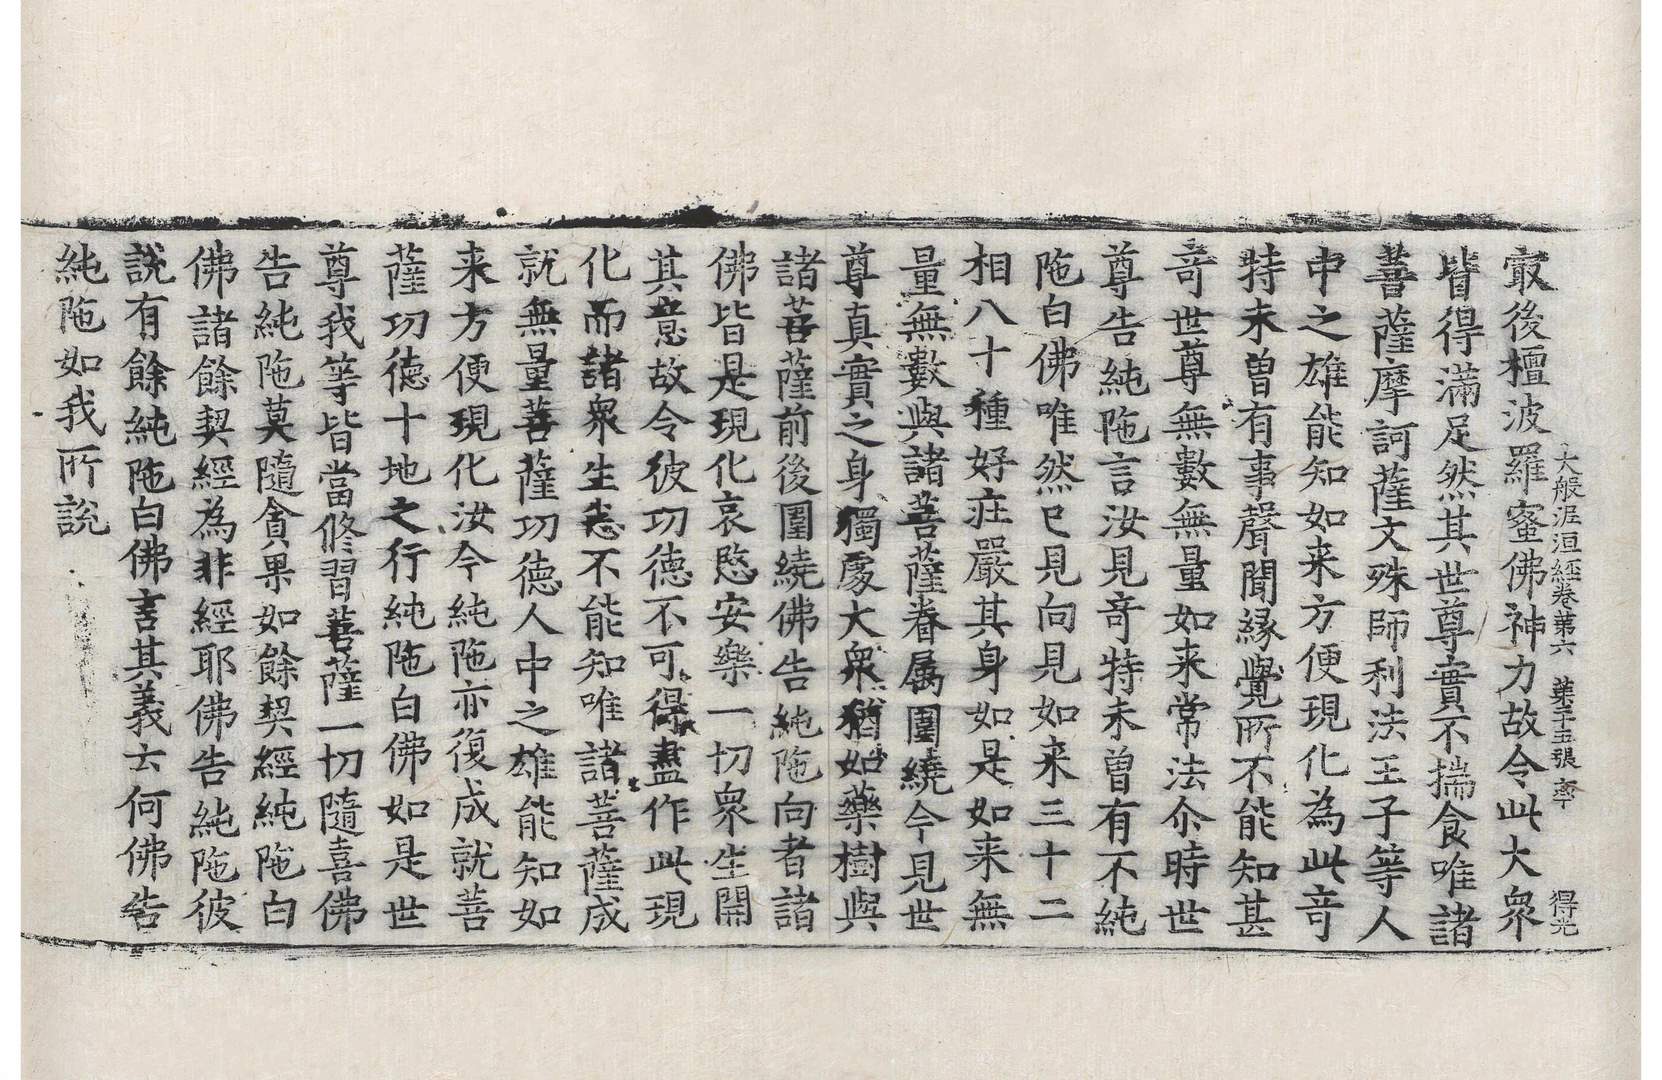 大般泥洹經卷第六　第十五張　率　得光
㝡後檀波羅蜜佛神力故令此大衆
皆得滿足然其世尊實不揣食唯諸
菩薩摩訶薩文殊師利法王子等人
中之雄能知如来方便現化為此竒
特未曽有事聲聞緣覺所不能知甚
竒世尊無數無量如来常法尒時世
尊告純陁言汝見竒特未曽有不純
陁白佛唯然已見向見如来三十二
相八十種好莊嚴其身如是如来無
量無數與諸菩薩眷属圍繞今見世
尊真實之身獨處大衆猶如藥樹與
諸菩薩前後圍繞佛告純陁向者諸
佛皆是現化哀愍安樂一切衆生開
其意故令彼功德不可得盡作此現
化而諸衆生悉不能知唯諸菩薩成
就無量菩薩功德人中之雄能知如
来方便現化汝今純陁亦復成就菩
薩功德十地之行純陁白佛如是世
尊我等皆當修習菩薩一切隨喜佛
告純陁莫隨貪果如餘契經純陁白
佛諸餘契經為非經耶佛告純陁彼
說有餘純陁白佛言其義云何佛告
純陁如我所說